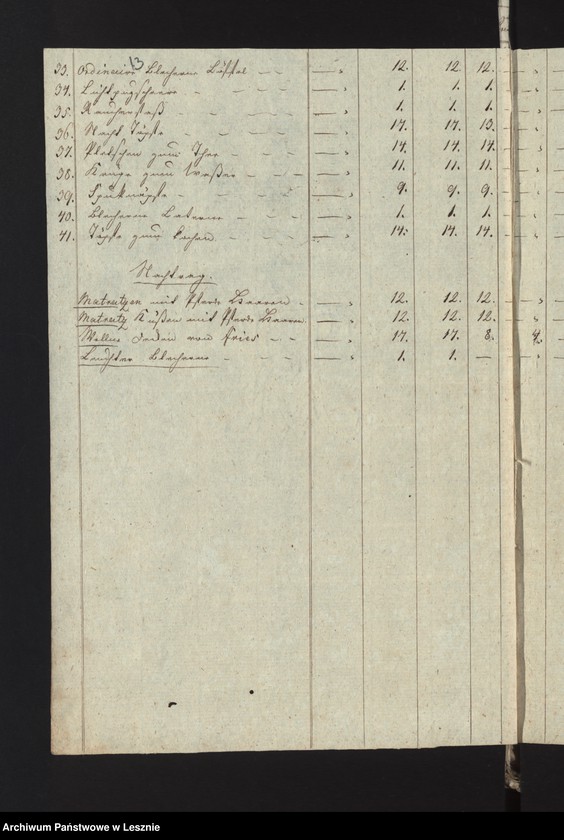 13
33. Ordinaire Blecherne Löffel — — — " 12. 12. 12. — "
34. Lichtputzscheere — — — " 1. 1. 1. — "
35. — — — " 1. 1. 1. — "
36. Nacht Töpfe — — — " 17. 17. 13. — "
37. zum Thee — — " 14. 14. 14. — "
38. Krüge zum Waßer — — — " 11. 11. 11. — "
39. Spucknäpfe — — — " 9. 9. 9. — "
40. Blecherne Laterne — — — " 1. 1. 1. — "
41. Töpfe zum Kochen — — — " 14. 14. 14. — "
Nachtrag.
Matratzen mit Pferde Haaren — — " 12. 12. 12. — "
Matratz Küßen mit Pferde Haaren — " 12. 12. 12. — "
Wollne Decken von Fries — — — " 17. 17. 8. 4.
Leuchter Blecherne — — — " 1. 1. — — "
Archiwum Państwowe w Lesznie